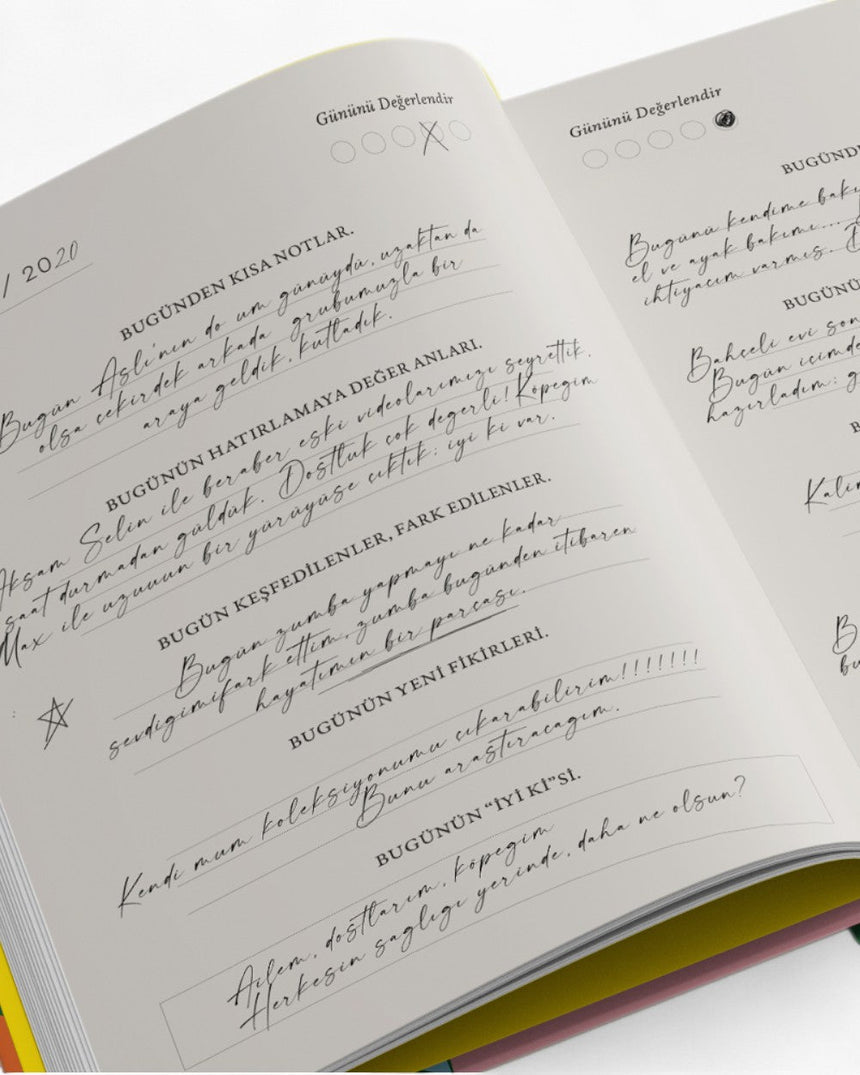 Gününü Değerlendir
/ 2020
BUGÜNDEN KISA NOTLAR.
Bugün Aslı'nın do um günüydü, uzaktan da
olsa çekirdek arkada grubumuzla bir
araya geldik, kutladık.
BUGÜNÜN HATIRLAMAYA DEĞER ANLARI.
Akşam Selin ile beraber eski videolarımızı seyrettik.
saat durmadan güldük. Dostluk çok değerli! Köpeğim
Max ile uzuuun bir yürüyüşe çıktık: iyi ki var.
BUGÜN KEŞFEDİLENLER, FARK EDİLENLER.
Bugün zumba yapmayı ne kadar
sevdiğimifark ettim, zumba bugünden itibaren
hayatımın bir parçası.
BUGÜNÜN YENİ FİKİRLERİ.
Kendi mum koleksiyonumu çıkarabilirim!!!!!!!
Bunu araştıracağım.
BUGÜNÜN “İYİ Kİ”Sİ.
Ailem, dostlarım, köpeğim
Herkesin sağlığı yerinde, daha ne olsun?
Gününü Değerlendir
BUGÜNDE
Bugünü kendime bakı
el ve ayak bakımı...
ihtiyacım varmış.
BUGÜNÜ
Bahçeli evi son
Bugün içimde
hazırladım: g
B
Kalin
B
bu